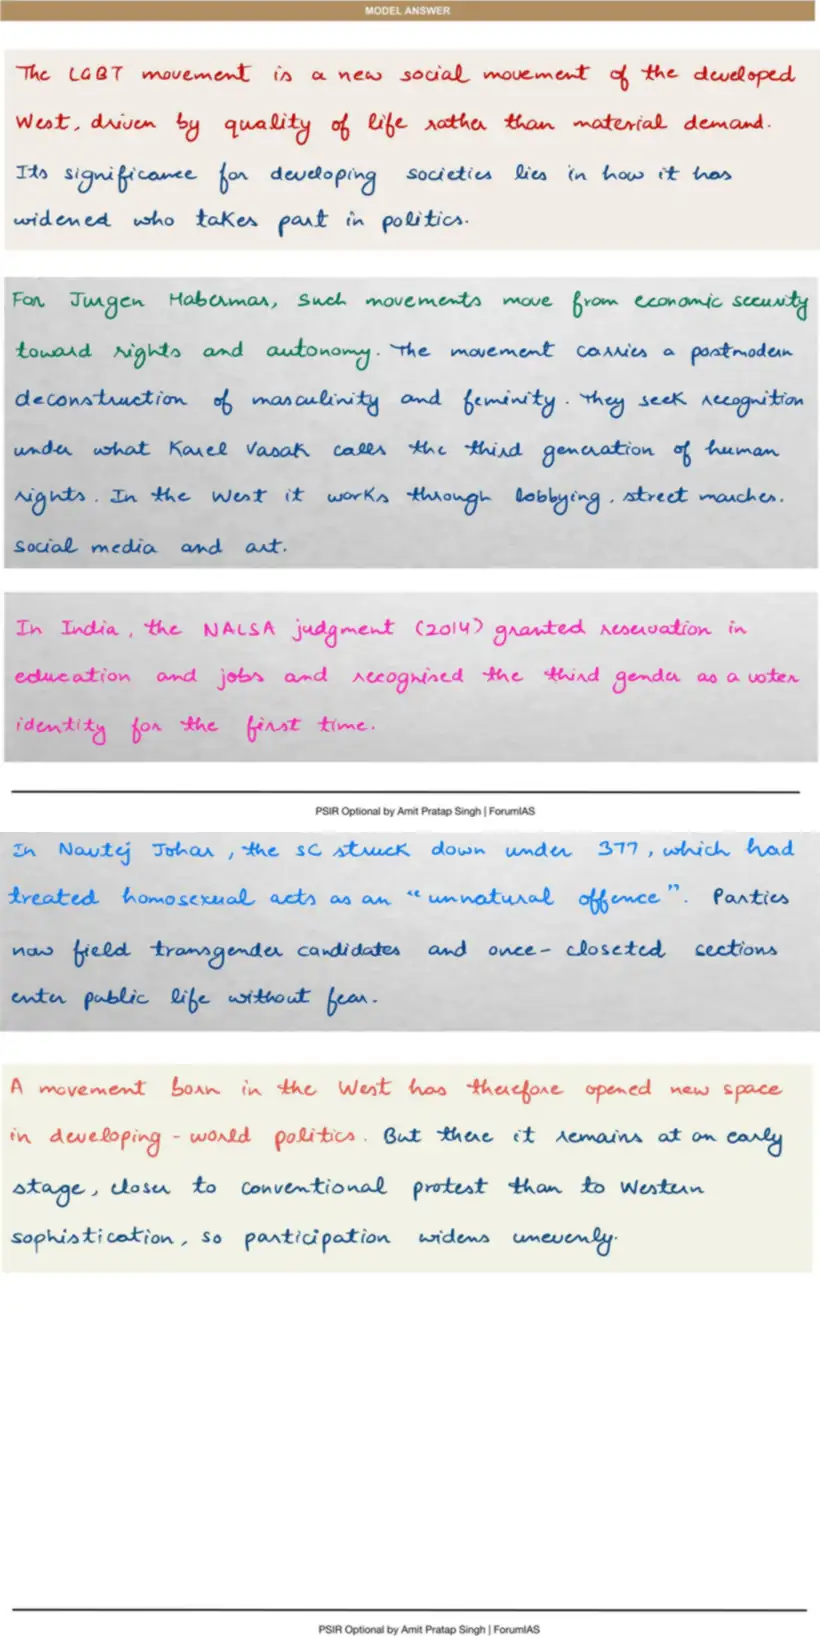 MODEL ANSWER
The LGBT movement is a new social movement of the developed
West, driven by quality of life rather than material demand.
Its significance for developing societies lies in how it has
widened who takes part in politics.
For Jurgen Habermas, such movements move from economic security
toward rights and autonomy. The movement carries a postmodern
deconstruction of masculinity and feminity. They seek recognition
under what Karel Vasak calls the third generation of human
rights. In the West it works through lobbying, street marches.
social media and art.
In India, the NALSA judgment (2014) granted reservation in
education and jobs and recognised the third gender as a voter
identity for the first time.
PSIR Optional by Amit Pratap Singh | ForumIAS
In Navtej Johar, the SC struck down under 377, which had
treated homosexual acts as an "unnatural offence". Parties
now field transgender candidates and once-closeted sections
enter public life without fear.
A movement born in the West has therefore opened new space
in developing-world politics. But there it remains at an early
stage, closer to conventional protest than to Western
sophistication, so participation widens unevenly.
PSIR Optional by Amit Pratap Singh | ForumIAS